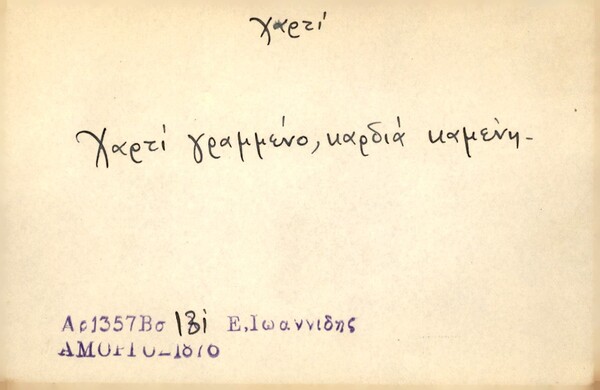 Χαρτί
Χαρτί γραμμένο, καρδιά καμένη.
Αρ1357Βσ 181 Ε,Ιωαννιδης
ΑΜΟΡΓΟΣ1876